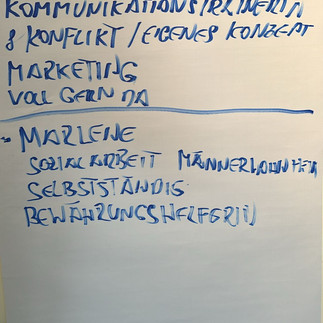 KOMMUNIKATIONSTRAINERIN
& KONFLIKT / EIGENES KONZEPT
MARKETING
VOLL GERN DA
MARLENE
SOZIALARBEIT
SELBSTSTÄNDIG
BEWÄHRUNGSHELFERIN